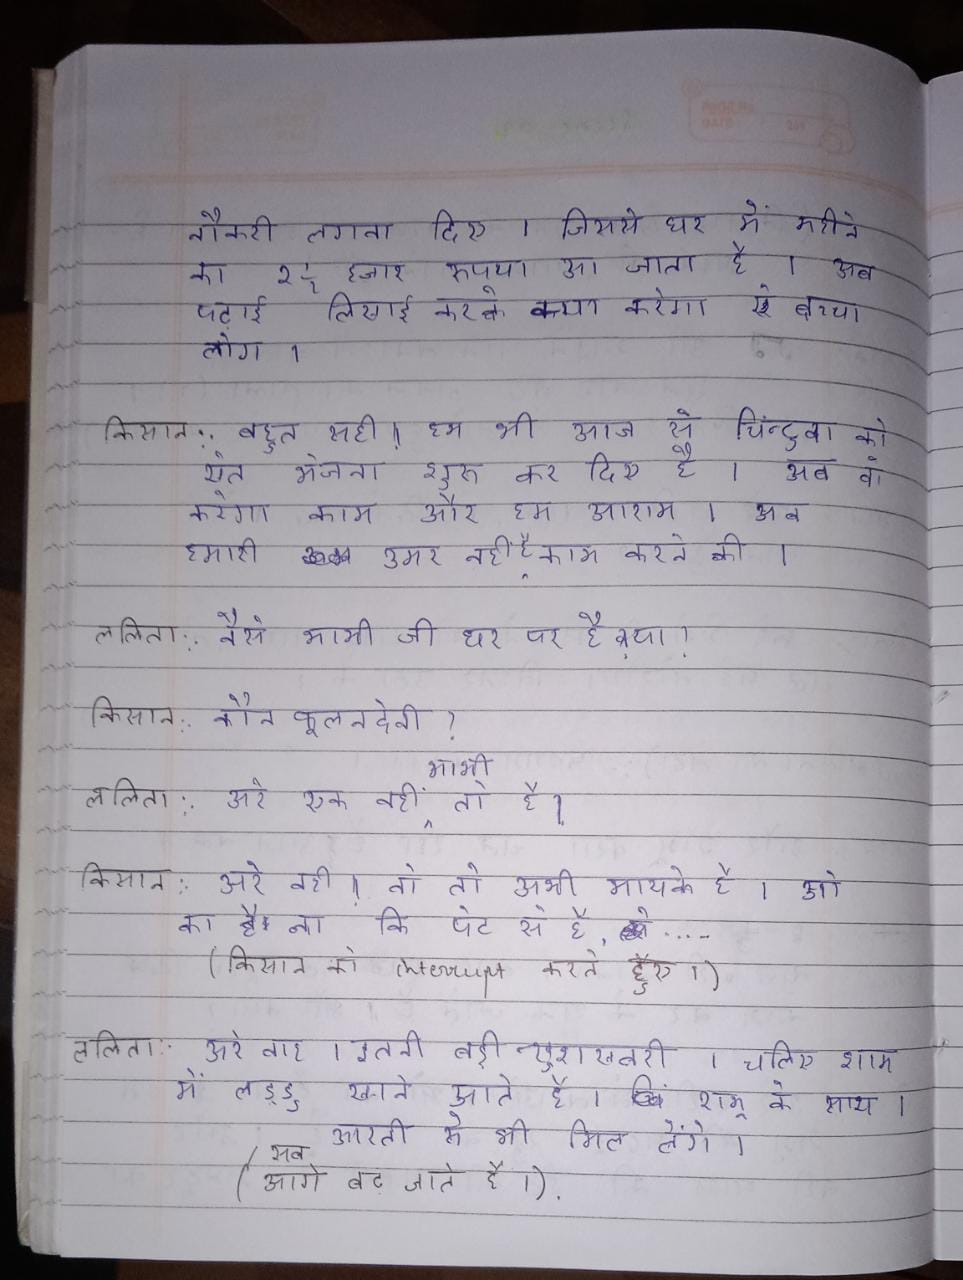 नौकरी लगवा दिए । जिससे घर में महीने
का २½ हजार रूपया आ जाता है । अब
पढ़ाई लिखाई करके क्या करेगा ये बच्चा
लोग ।
किसान:. बहुत सही । हम भी आज से चिन्टुवा को
खेत भेजना शुरू कर दिए है । अब वो
करेगा काम और हम आराम । अब
हमारी उमर नहीं है काम करने की ।
ललिता:. वैसे भाभी जी घर पर है क्या ?
किसान:. कौन फूलनदेवी ?
भाभी
ललिता:. अरे एक वहीं तो है ।
किसान:. अरे नही । वो तो अभी मायके है । ओ
का है ना कि पेट से है, ....
(किसान को interrupt करते हुए ।)
ललिता:. अरे वाह । इतनी बड़ी खुशखबरी । चलिए शाम
में लड्डु खाने आते है । रामू के साथ ।
आरती में भी मिल लेंगे ।
सब
(आगे बढ़ जाते है ।).